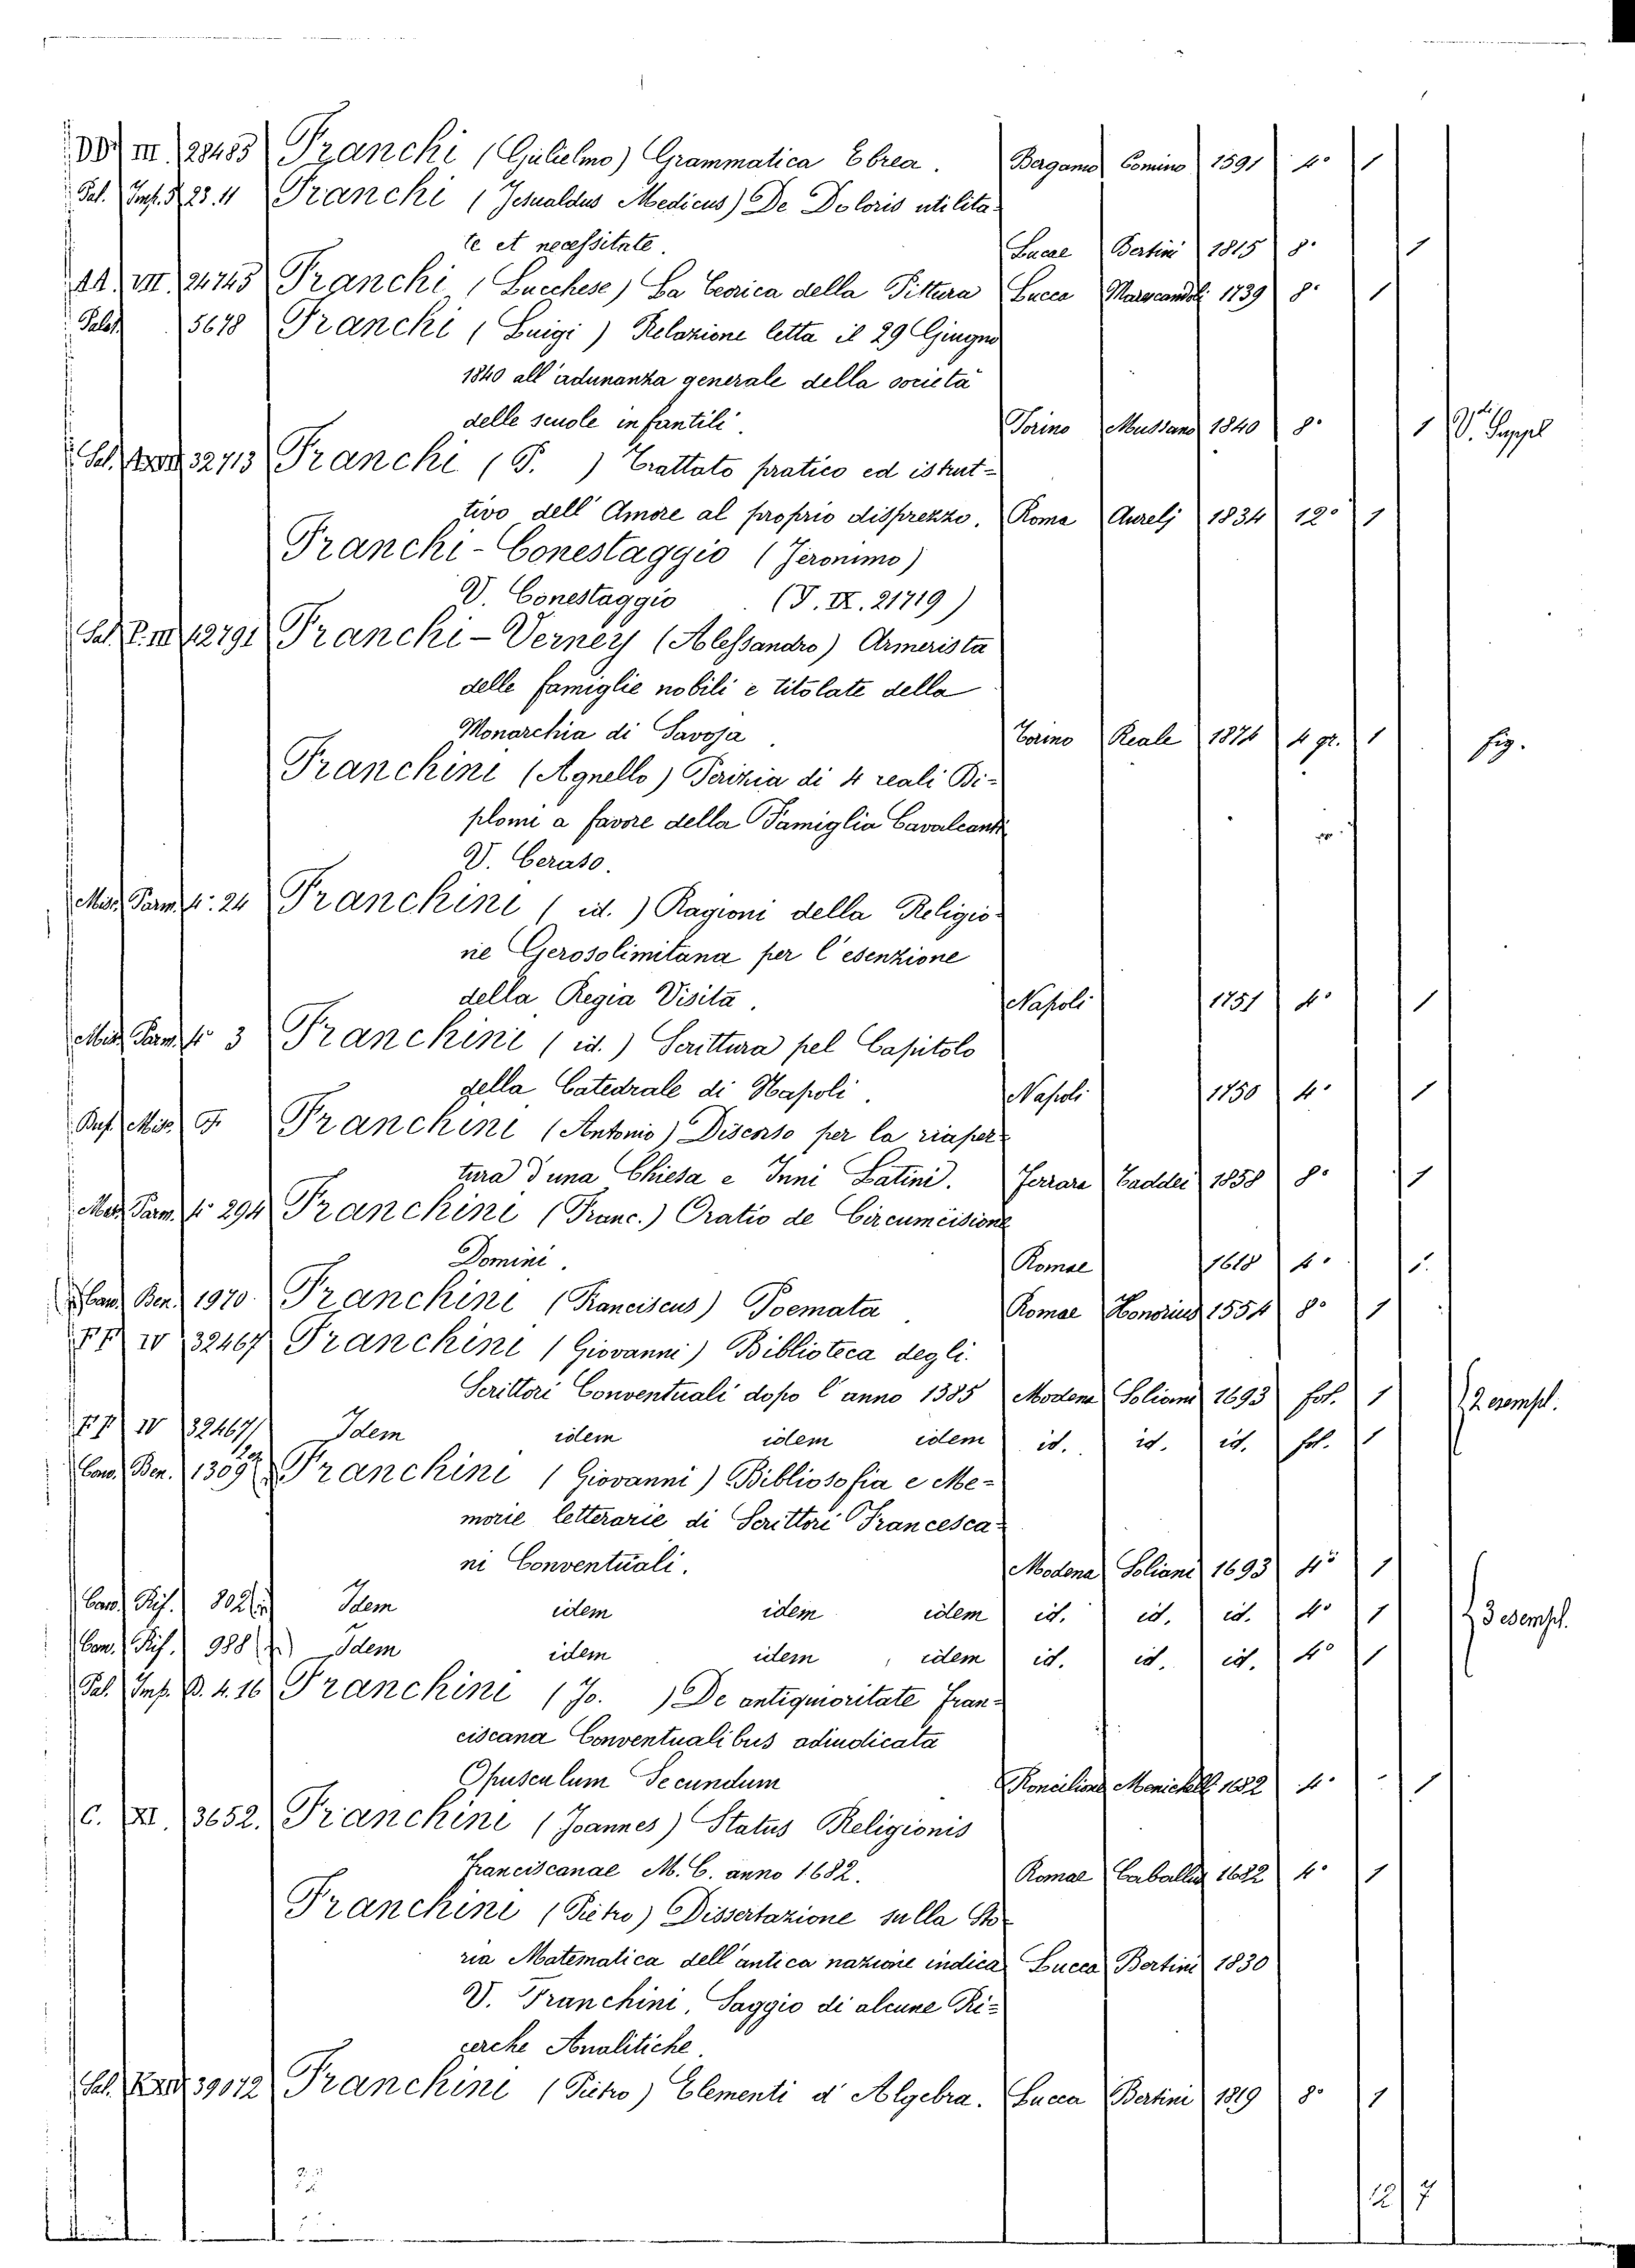 DD III 28485 Franchi (Gulielmo) Grammatica Ebrea. Bergamo Comino 1591 4° 1
Sal. Imp. 23.11 Franchi (Jesualdus Medicus) De Doloris utilita-
te et necessitate. Lucae Bertini 1815 8° 1
AA. VII. 24745 Franchi (Lucchese) La Teorica della Pittura Lucca 1739 8° 1
Palat 5678 Franchi (Luigi) Relazione letta il 29 Giugno
1840 all'adunanza generale della società
delle scuole infantili. Torino Mussano 1840 8° 1 V. Suppl
Sal. 32713 Franchi (P. ) Trattato pratico ed istrut-
tivo dell'Amore al proprio disprezzo. Roma Aurelj 1834 12° 1
Franchi-Conestaggio (Jeronimo)
V. Conestaggio (T. IX. 21719)
Sal. P. III 42791 Franchi-Verney (Alessandro) Armerista
delle famiglie nobili e titolate della
Monarchia di Savoja Torino Reale 1874 4 gr. 1 fig.
Franchini (Agnello) Perizia di 4 reali Di-
plomi a favore della Famiglia Cavalcanti
V. Ceraso.
Misc. Parm. 4° 24 Franchini (id.) Ragioni della Religio-
ne Gerosolimitana per l'esenzione
della Regia Visita. Napoli 1751 4° 1
Misc. Parm. 4° 3 Franchini (id.) Scrittura pel Capitolo
della Catedrale di Napoli. Napoli 1750 4° 1
Misc. Franchini (Antonio) Discorso per la riaper-
tura d'una Chiesa e Inni Latini. Ferrara Taddei 1858 8° 1
Misc. Parm. 4° 294 Franchini (Franc.) Oratio de Circumcisione
Domini. Romae 1618 4° 1.
Ban. Ben. 1970. Franchini (Franciscus) Poemata Romae Honorius 1554 8° 1
FF IV 32467 Franchini (Giovanni) Biblioteca degli
Scrittori Conventuali dopo l'anno 1385 Modena Soliani 1693 fol. 1 2 esempl.
FF IV 32467/1 Idem idem idem idem id. id. id. fol. 1
Ban. Ben. 1309 Franchini (Giovanni) Bibliosofia e Me-
morie letterarie di Scrittori Francesca-
ni Conventuali. Modena Soliani 1693 4° 1
Ban. Rif. 802 Idem idem idem idem id. id. id. 4° 1 3 esempl.
Ban. Rif. 988 Idem idem idem idem id. id. id. 4° 1
Sal. Imp. B. 4. 16 Franchini (Jo. ) De antiquioritate Fran-
ciscana Conventualibus adiudicata
Opusculum Secundum Roncilione Menichelli 1682 4° 1
C. XI. 3652. Franchini (Joannes) Status Religionis
Franciscanae M. C. anno 1682. Romae 1682 4° 1
Franchini (Pietro) Dissertazione sulla Sto-
ria Matematica dell'antica nazione indica Lucca Bertini 1830
V. Franchini, Saggio di alcune Ri-
cerche Analitiche.
Sal. 39012 Franchini (Pietro) Elementi d'Algebra. Lucca Bertini 1819 8° 1
12 7